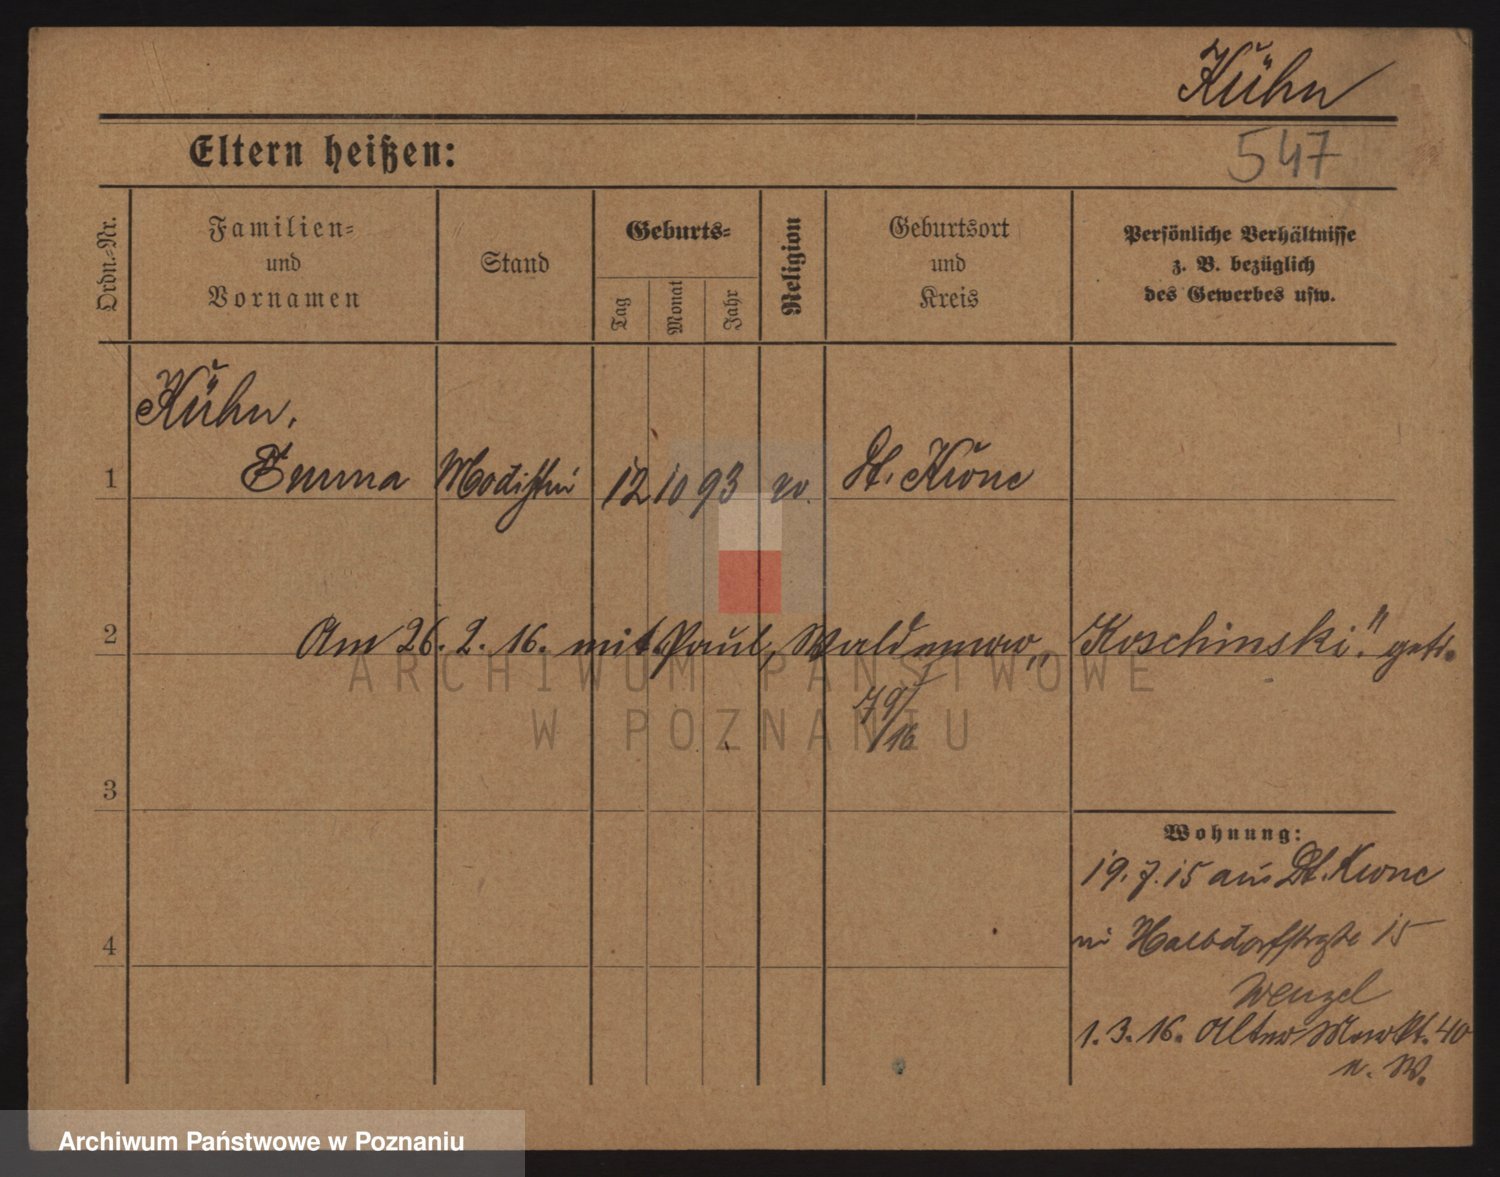 Kühn
Eltern heißen:
547
Ordn.-Nr.
Familien-
und
Vornamen
Stand
Geburts-
Tag
Monat
Jahr
Religion
Geburtsort
und
Kreis
Persönliche Verhältnisse
z. B. bezüglich
des Gewerbes usw.
Kühn,
1 Emma Modistin 12 10 93 ev. Dt. Krone
2 Am 26. 2. 16. mit Paul, Waldemar „Koschinski" getr.
79/16
3
Wohnung:
19.7.15 aus Dt. Krone
4
in Halbdorfstraße 15
Wenzel
1. 3. 16. Alter Markt. 40
n. W.
ARCHIWUM PAŃSTWOWE
W POZNANIU
Archiwum Państwowe w Poznaniu